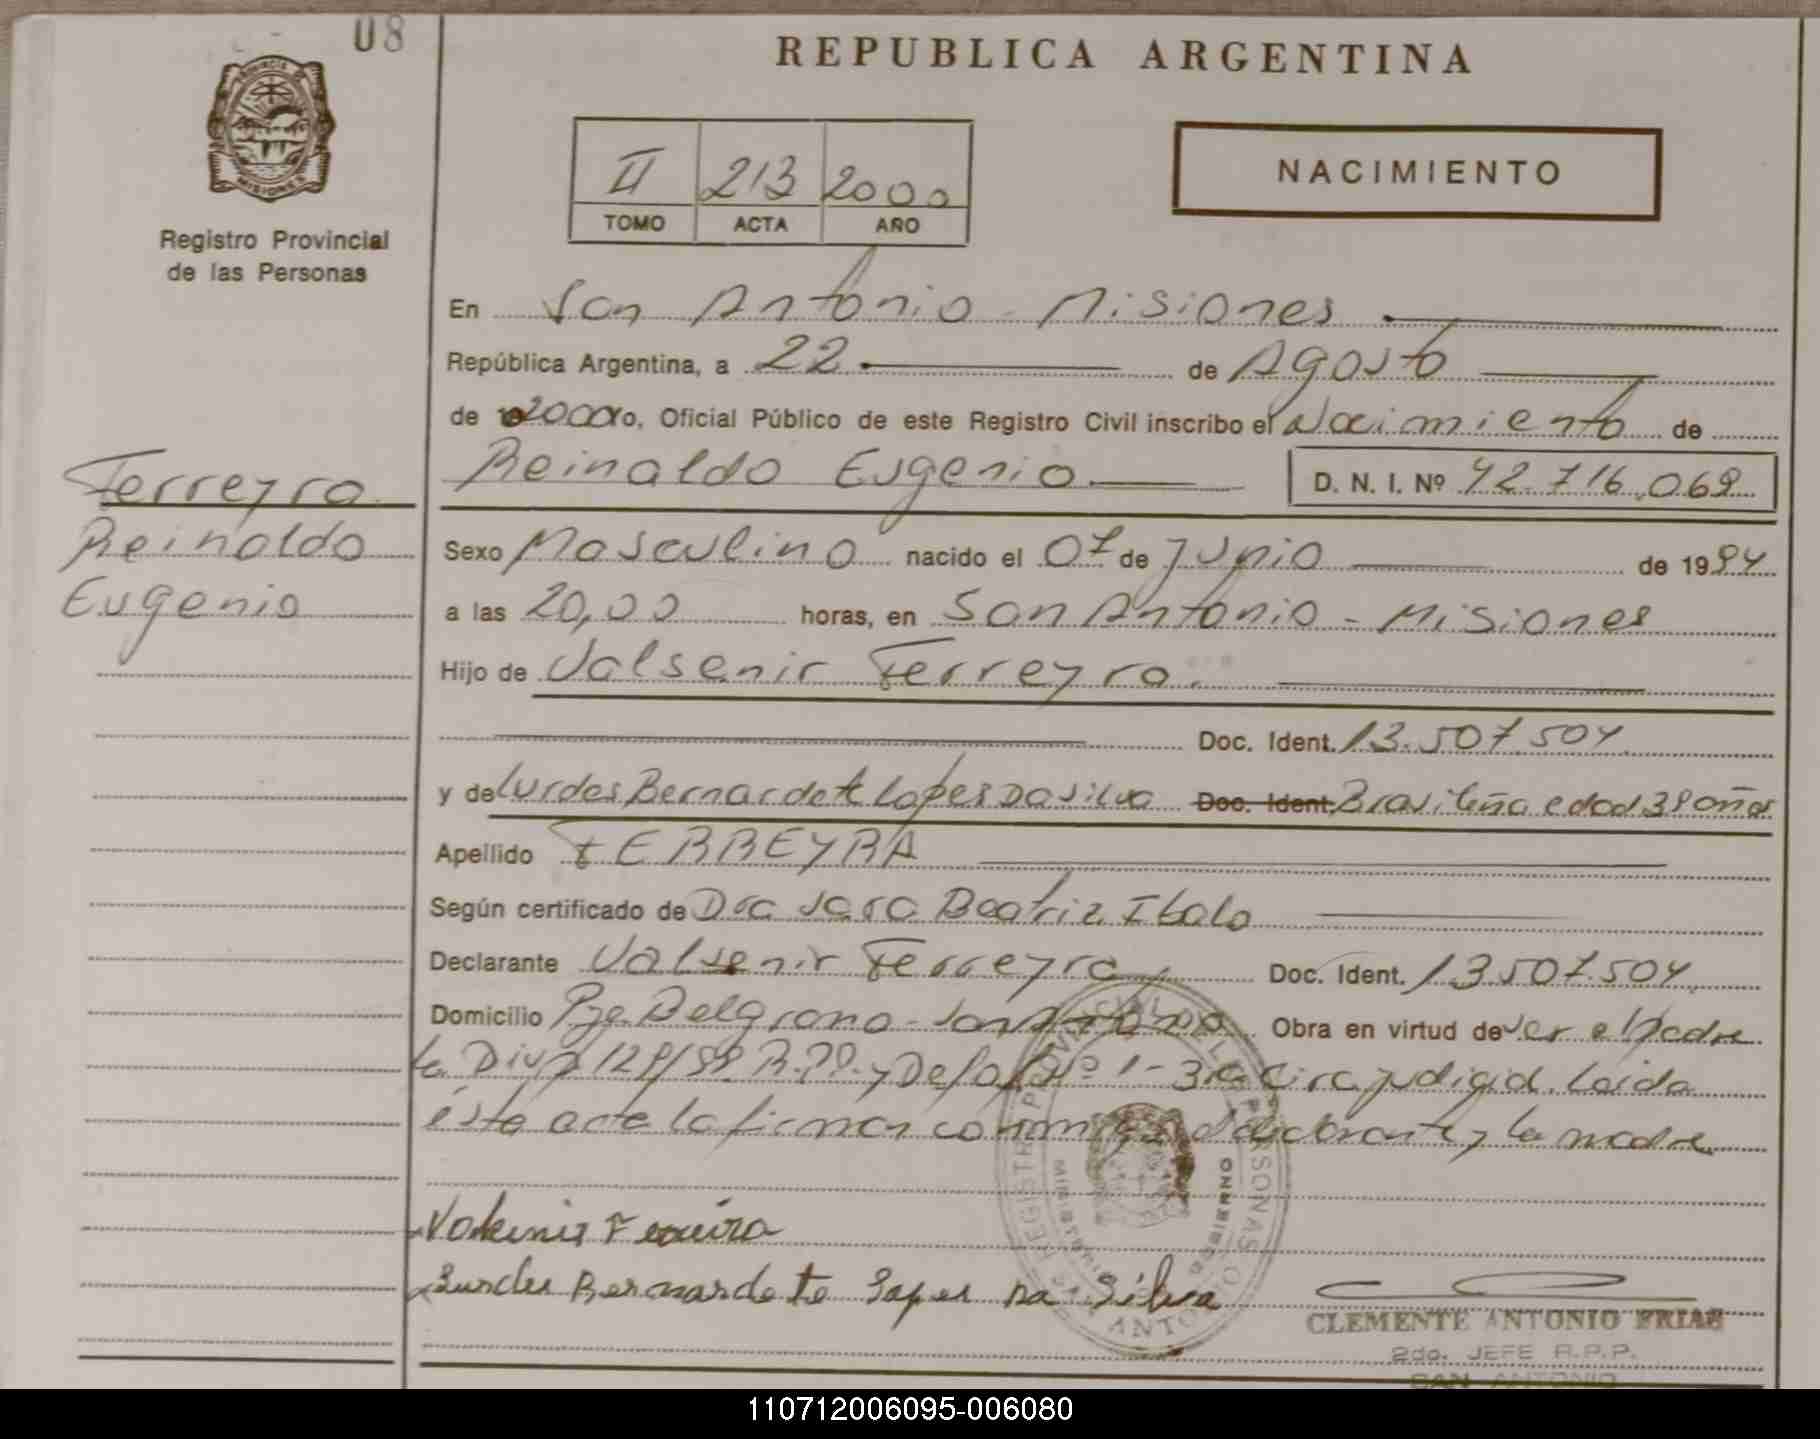 08
REPUBLICA ARGENTINA
PROVINCIA DE
MISIONES
Registro Provincial
de las Personas
II 213 2000
TOMO ACTA AÑO
NACIMIENTO
En San Antonio - Misiones
República Argentina, a 22 de Agosto
de 2000 yo, Oficial Público de este Registro Civil inscribo el Nacimiento de
Reinaldo Eugenio D. N. I. Nº 42.716.069
Ferreyra
Reinaldo
Eugenio
Sexo Masculino nacido el 07 de Junio de 1994
a las 20,00 horas, en San Antonio - Misiones
Hijo de Valsenir Ferreyra
Doc. Ident. 13.507.504
y de Lurdes Bernardete Lopes Da Silva Doc. Ident. Brasileña edad 39 años
Apellido FERREYRA
Según certificado de Dra Sara Beatriz
Declarante Valsenir Ferreyra Doc. Ident. 13.507.504
Domicilio Pje Belgrano - San Antonio Obra en virtud de ser el padre
1 - 3ra Circ. judicial. Leida
ésta acta la firman conmigo el declarante y la madre
Bernardete Lopes Da Silva
REGISTRO PROVINCIAL DE LAS PERSONAS
MINISTERIO GOBIERNO
SAN ANTONIO
CLEMENTE ANTONIO FRIAS
2do. JEFE R.P.P.
SAN ANTONIO
110712006095-006080